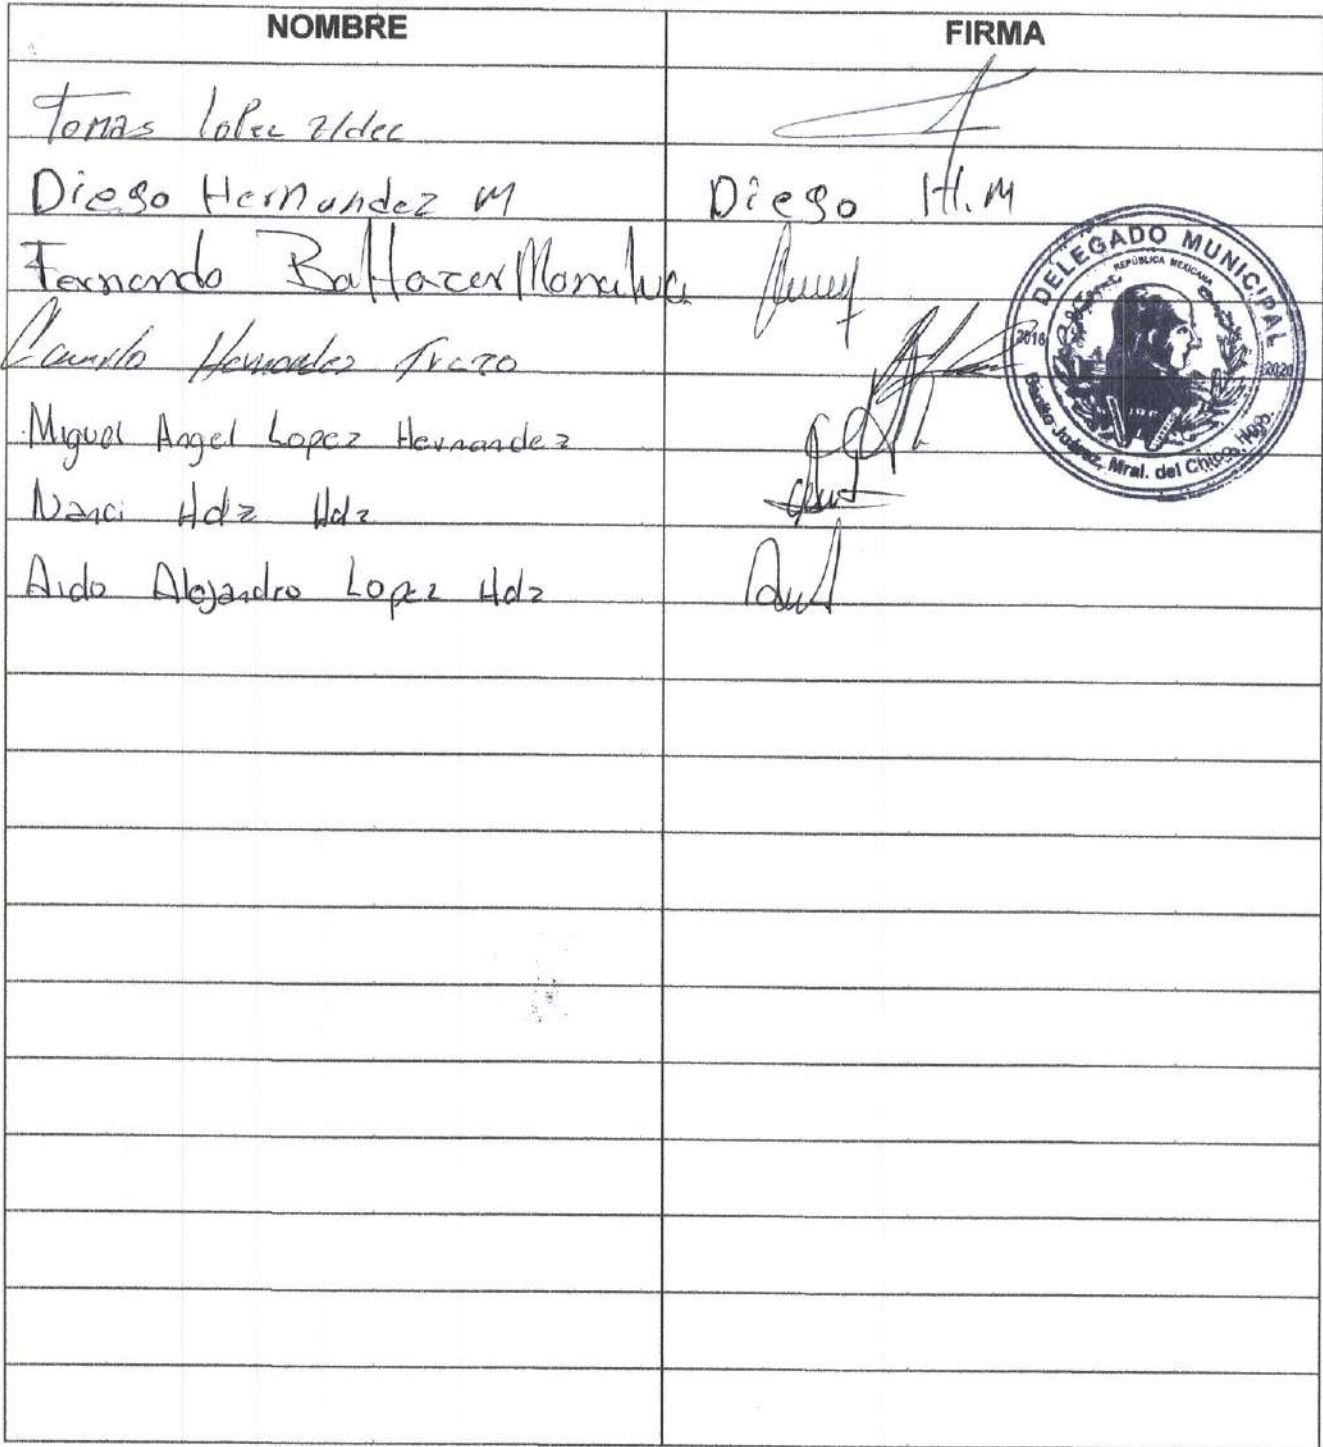 NOMBRE FIRMA
Tomas Lopez
Diego Hernandez M Diego H.M
Fernando Baltazar
Camilo Hernandez
Miguel Angel Lopez Hernandez
Nanci Hdz Hdz
Aldo Alejandro Lopez Hdz
DELEGADO MUNICIPAL
REPÚBLICA MEXICANA
2020
Benito Juárez, Mral. del Chico, Hgo.